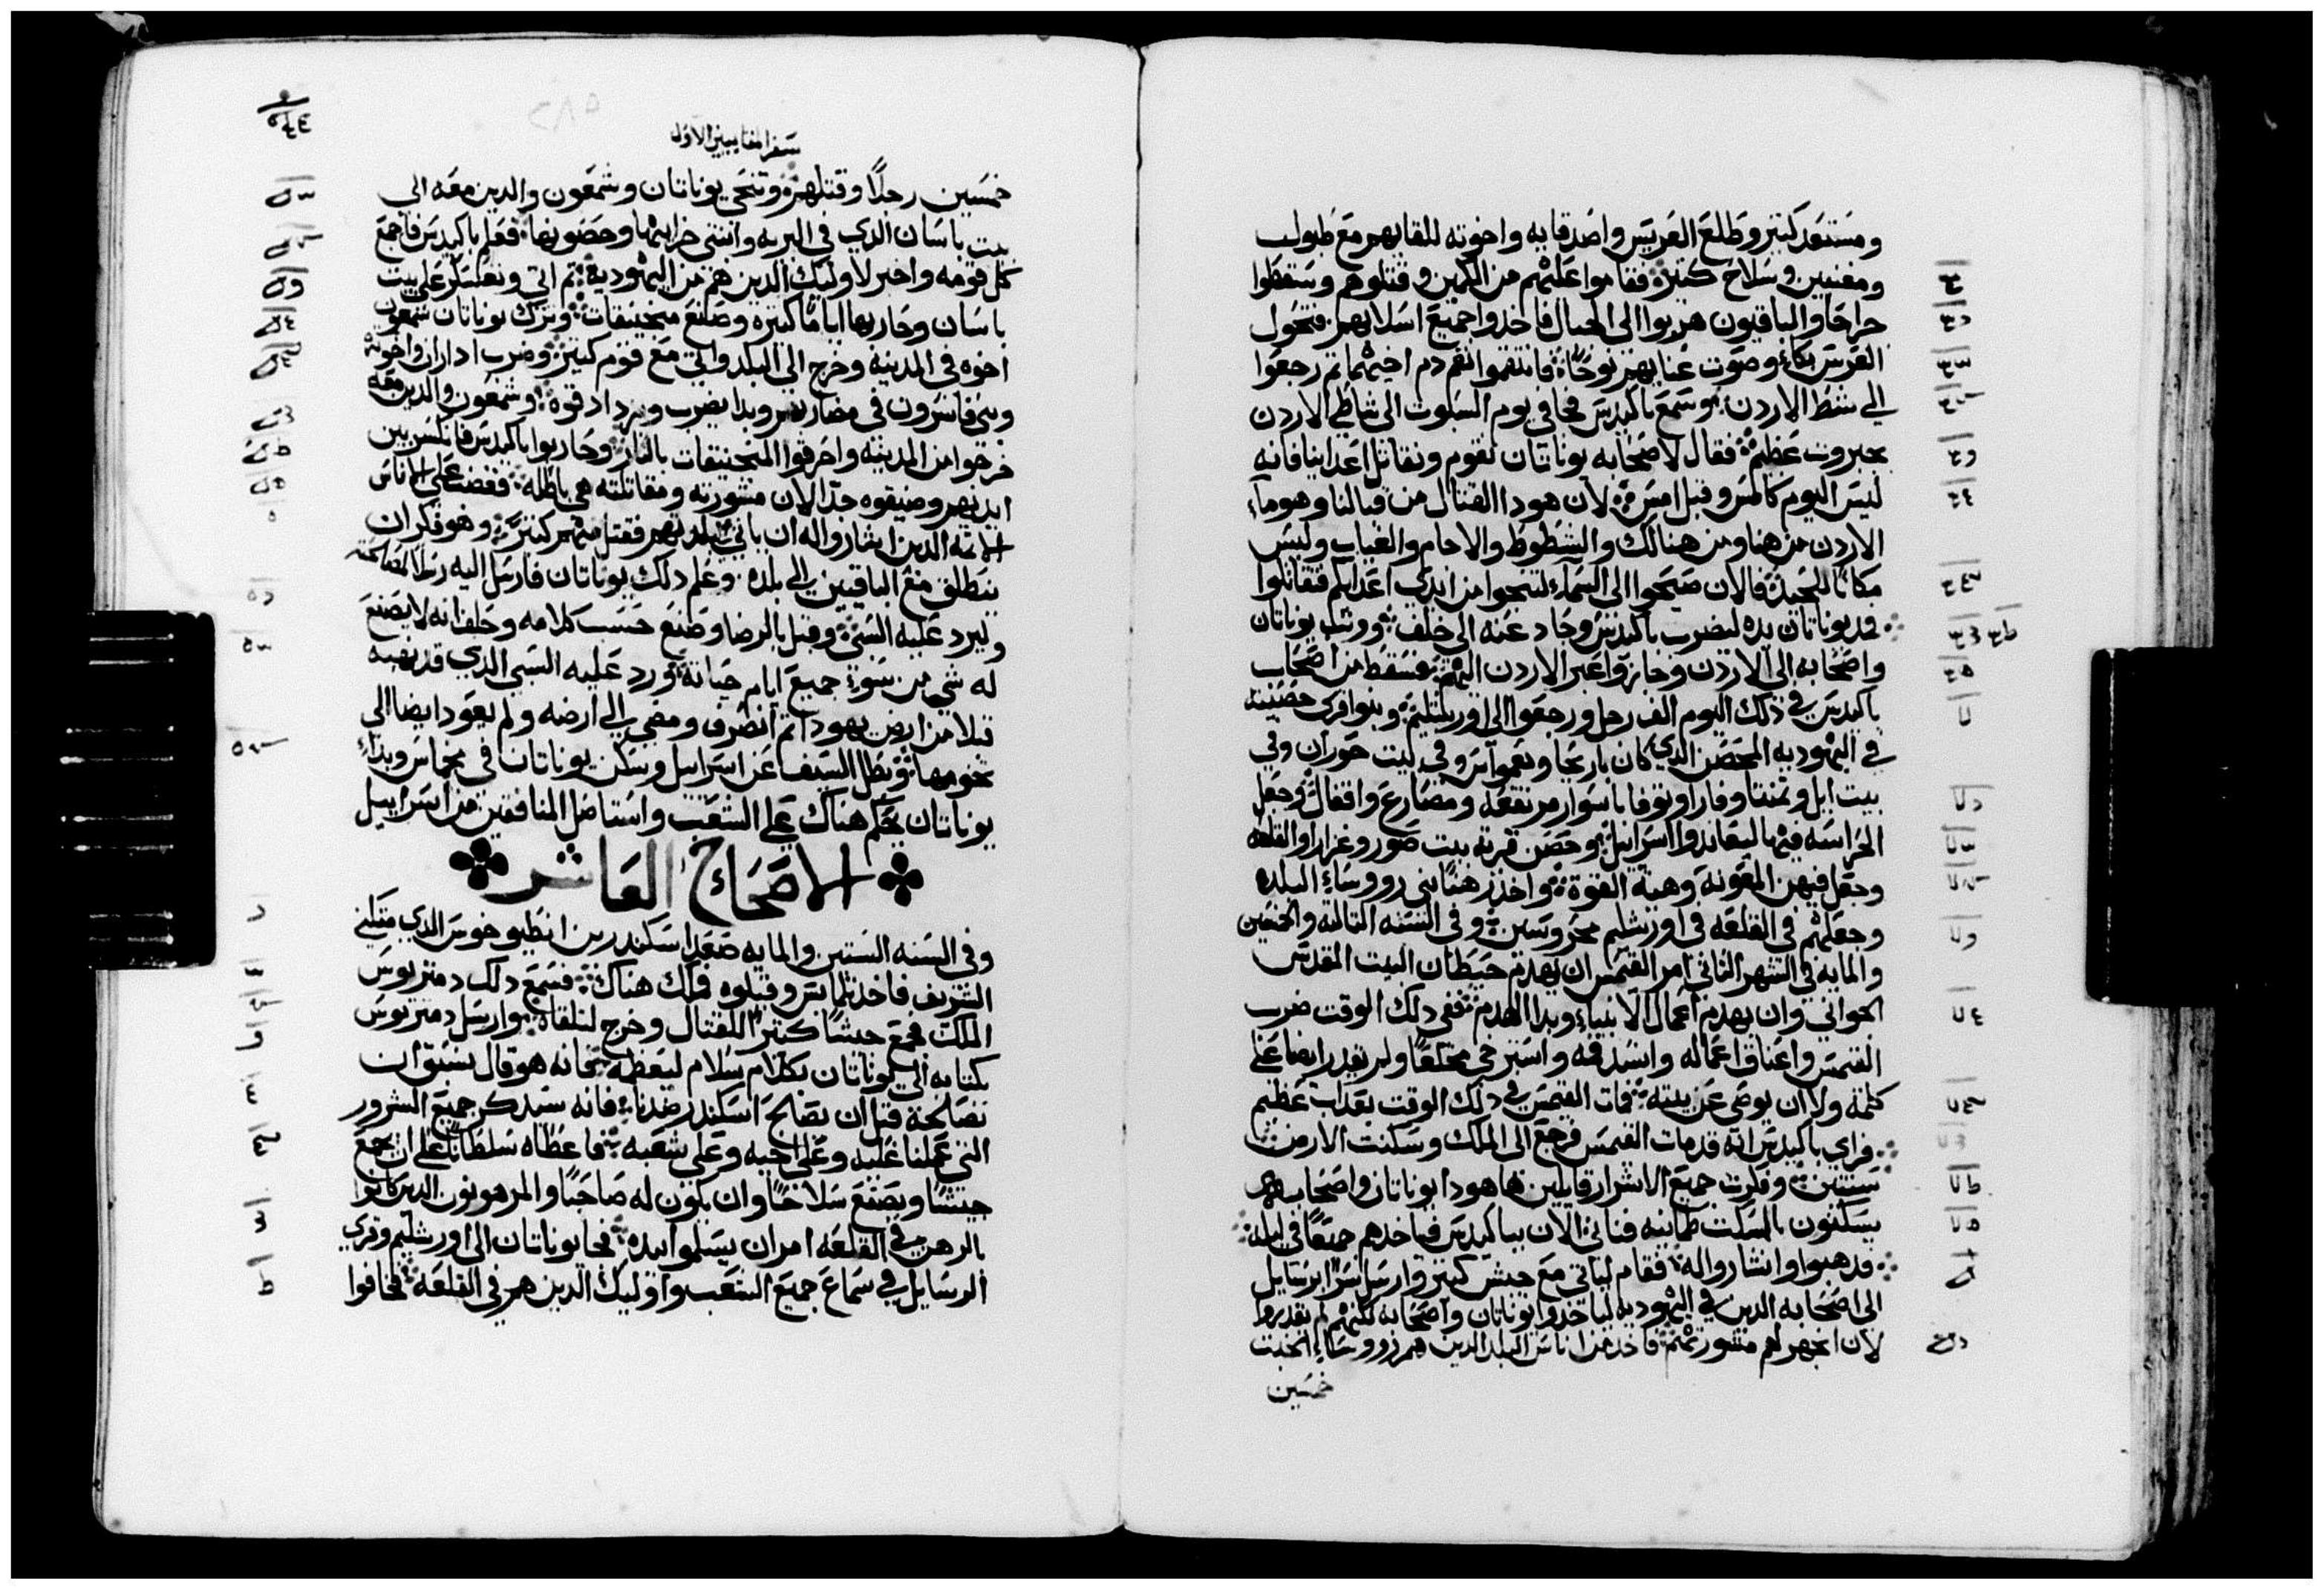 ومستعد كتير وطلع العريس واصدقايه واخوته للقايهم مع طبول
ومغنيين وسلاح كتيره فقاموا عليهم من الكمين وقتلوهم وسقطوا
جراحا والباقيون هربوا الى الجبال فاخدوا جميع اسلابهم فتحول
العرس بكاءً وصوت غنايهم نوحًا فانتقموا نقم دم اخيهما تم رجعوا
الى شط الاردن وسمع باكيدس فجا في يوم السبوت الى شاطي الاردن
بجبروت عظيم فقال لاصحابه يوناتان لنقوم ونقاتل اعداينا فانه
ليس اليوم كالمس وقبل امس لان هودا القتال من قبالنا وهوماء
الاردن من هنا ومن هنالك والشطوط والاجام والغياب وليس
مكانًا للحيدة فالان صيحوا الى السماء لتنجوا من ايدي اعدايكم فتقاتلوا
فمد يوناتان يده ليضرب باكيدس وحاد عنه الى خلف ووتب يوناتان
واصحابه الى الاردن وجازوا عبر الاردن اليهم فسقط من اصحاب
باكيدس في دلك اليوم الف رجل ورجعوا الى اورشليم وبنوا قرى حصينه
في اليهوديه المحصن الدي كان باريحا وبعمواس وفي بيت حوران وفي
بيت ايل وتمنتا وفارا وتوفا باسوار مرتفعه ومصاريع واقفال وجعل
الحراسه فيها ليعاندوا اسراييل وحصن قرية بيت صور وغزارا والقلعه
وجعل فيهن المعونه وهبة القوة واخد رهنًا بني رووساء البلده
وجعلهم في القلعه في اورشليم محروسين وفي السنه التالته والخمسين
والمايه في الشهر التاني امر القيمس ان يهدم حيطان البيت المقدس
الجواني وان يهدم اعمال الانبياء وبدا الهدم ففي دلك الوقت ضرب
القيمس واعتاق اعماله وانسد فمه واسترخي مخلعًا ولم يقدر ايضا على
كلمة ولا ان يوصي عن بيته فمات القيمس في دلك الوقت بعداب عظيم
فراي باكيدس انه قد مات القيمس فرجع الى الملك وسكنت الارض
سنتين وفكرت جميع الاشرار قايلين ها هودا يوناتان واصحابه هم
يسكنون بالسكت طمانينه فناتي الان بباكيدس فياخدهم جميعًا في ليله
فدهبوا واشاروا له فقام لياتي مع جيش كتير وارسل سرًا برسايل
الى اصحابه الدين في اليهوديه لياخدوا يوناتان واصحابه لكنهم لم يقدروا
لان انجهر لهم مشورتهم فاخد من اناس البلد الدين هم رووساء الخبت
خمسين
سفر المقابيين الاول
خمسين رجلًا وقتلهم وتنحي يوناتان وشمعون والدين معه الى
بيت باسان الدي في البريه وانشى خرايبها وحصونها فعلم باكيدس فاجمع
كل قومه واخبر لاوليك الدين هم من اليهودية تم اتي وتعسكر على بيت
باسان وحاربها ايامًا كتيره وصنع منجنيقات وترك يوناتان شمعون
اخوه في المدينه وخرج الى البلد واتي مع قوم كتير وضرب اداران واخوته
وبني فاسرون في مضاربهم وبدا يضرب ويزداد قوة وشمعون والدين معه
خرجوا من المدينه واحرقوا المنجنيقات بالنار وحاربوا باكيدس فانكسر بين
ايديهم وضيقوه جدًا لان مشورته ومقاتلته هي باطله فغضب على الاناس
الاتمة الدين اشاروا له ان ياتي الى بلدتهم فقتل منهم كتير وهو فكر ان
ينطلق مع الباقيين الى بلده وعلم دلك يوناتان فارسل اليه رسلا لمصالحته
وليرد عليه السبي وقبل بالرضا وصنع حسب كلامه وحلف انه لا يصنع
له شي من سوء جميع ايام حياته ورد عليه السبي الدي قد نهبه
قبلا من ارض يهودا تم انصرف ومضي الى ارضه ولم يعود ايضا الى
تخومها وبطل السيف عن اسراييل وسكن يوناتان في مخماس وبداء
يوناتان يحكم هناك على الشعب واستاصل المنافقين من اسراييل
الاصحاح العاشر
وفي السنه الستين والمايه صعد اسكندر بن انطيوخوس الدي متلني
الشريف فاخد تلمايس وقبلوه فملك هناك فسمع دلك دمتريوس
الملك فجمع جيشًا كتيرًا للقتال وخرج لتلقاه وارسل دمتريوس
بكتابه الى يوناتان بكلام سلام ليعظمه فانه هو قال نسبق ان
نصالحه قبل ان يصالح اسكندر ضدنا فانه سيدكر جميع الشرور
التي عملنا عليه وعلى اخيه وعلى شعبه فاعطاه سلطانًا على ان يجمع
جيشًا ويصنع سلاحًا وان يكون له صاحبًا والمرهونون الدين كانوا
بالرهن في القلعه امر ان يسلموا بيده فجا يوناتان الى اورشليم وقري
الرسايل في سماع جميع الشعب واوليك الدين هم في القلعه فخافوا